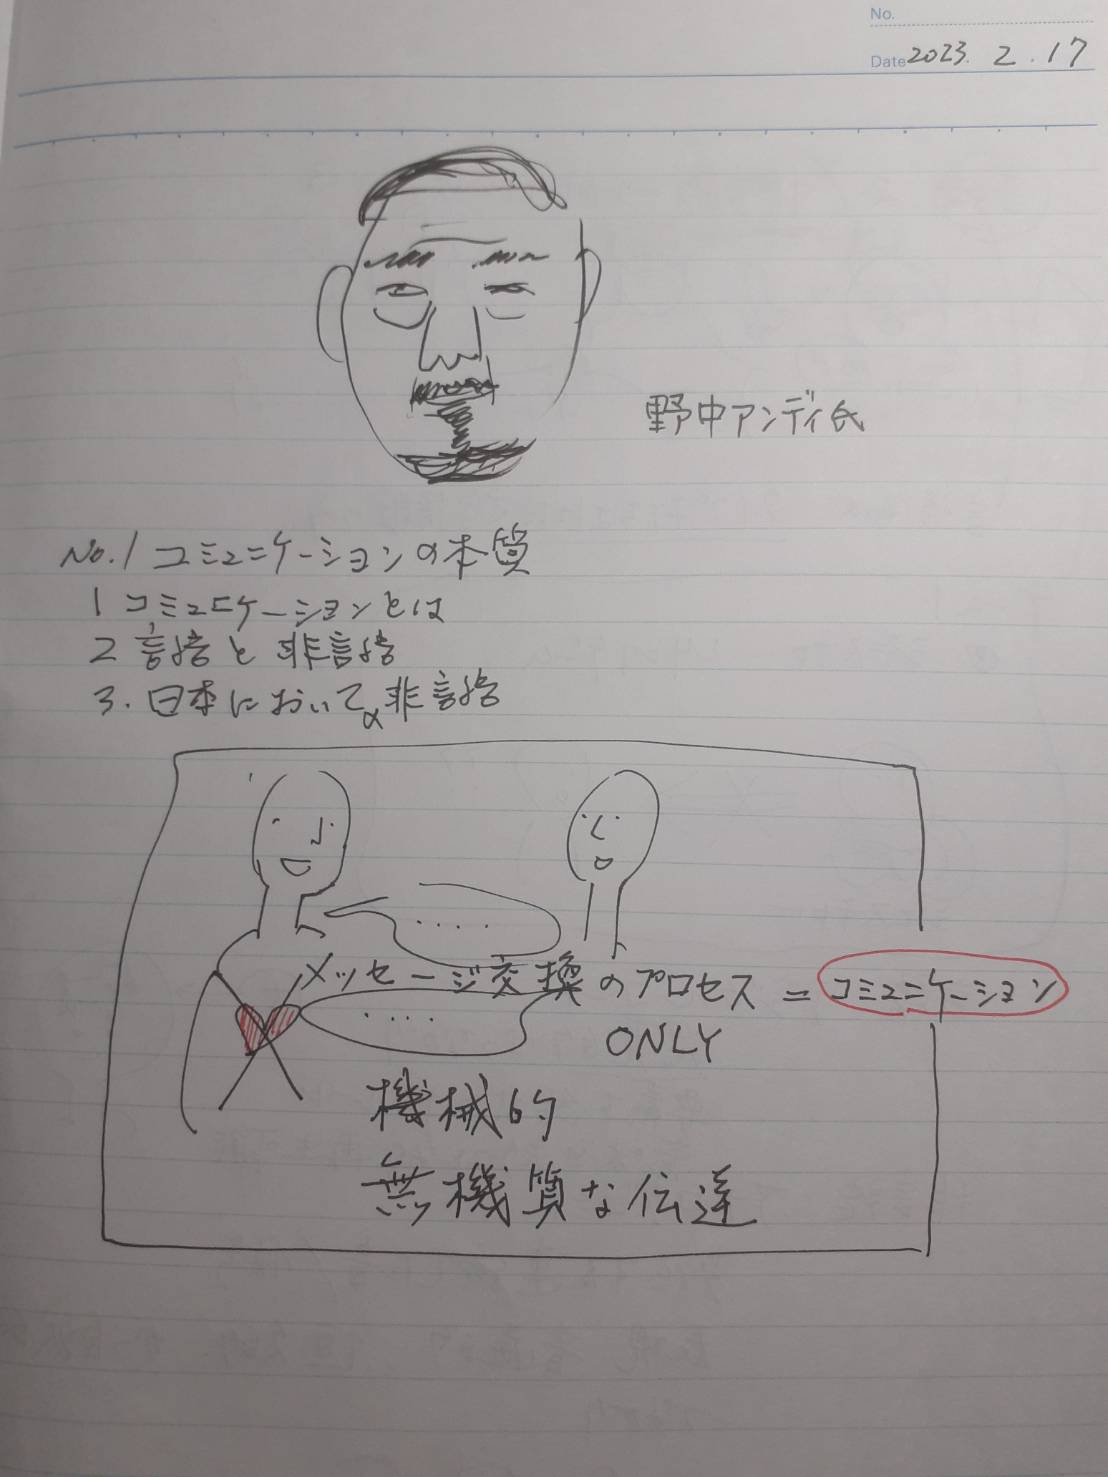 No.
Date 2023. 2. 17
野中アンディ氏
No.1 コミュニケーションの本質
1 コミュニケーションとは
2 言語と非言語
3. 日本においての非言語
....
メッセージ交換のプロセス = コミュニケーション
....
ONLY
機械的
無機質な伝達